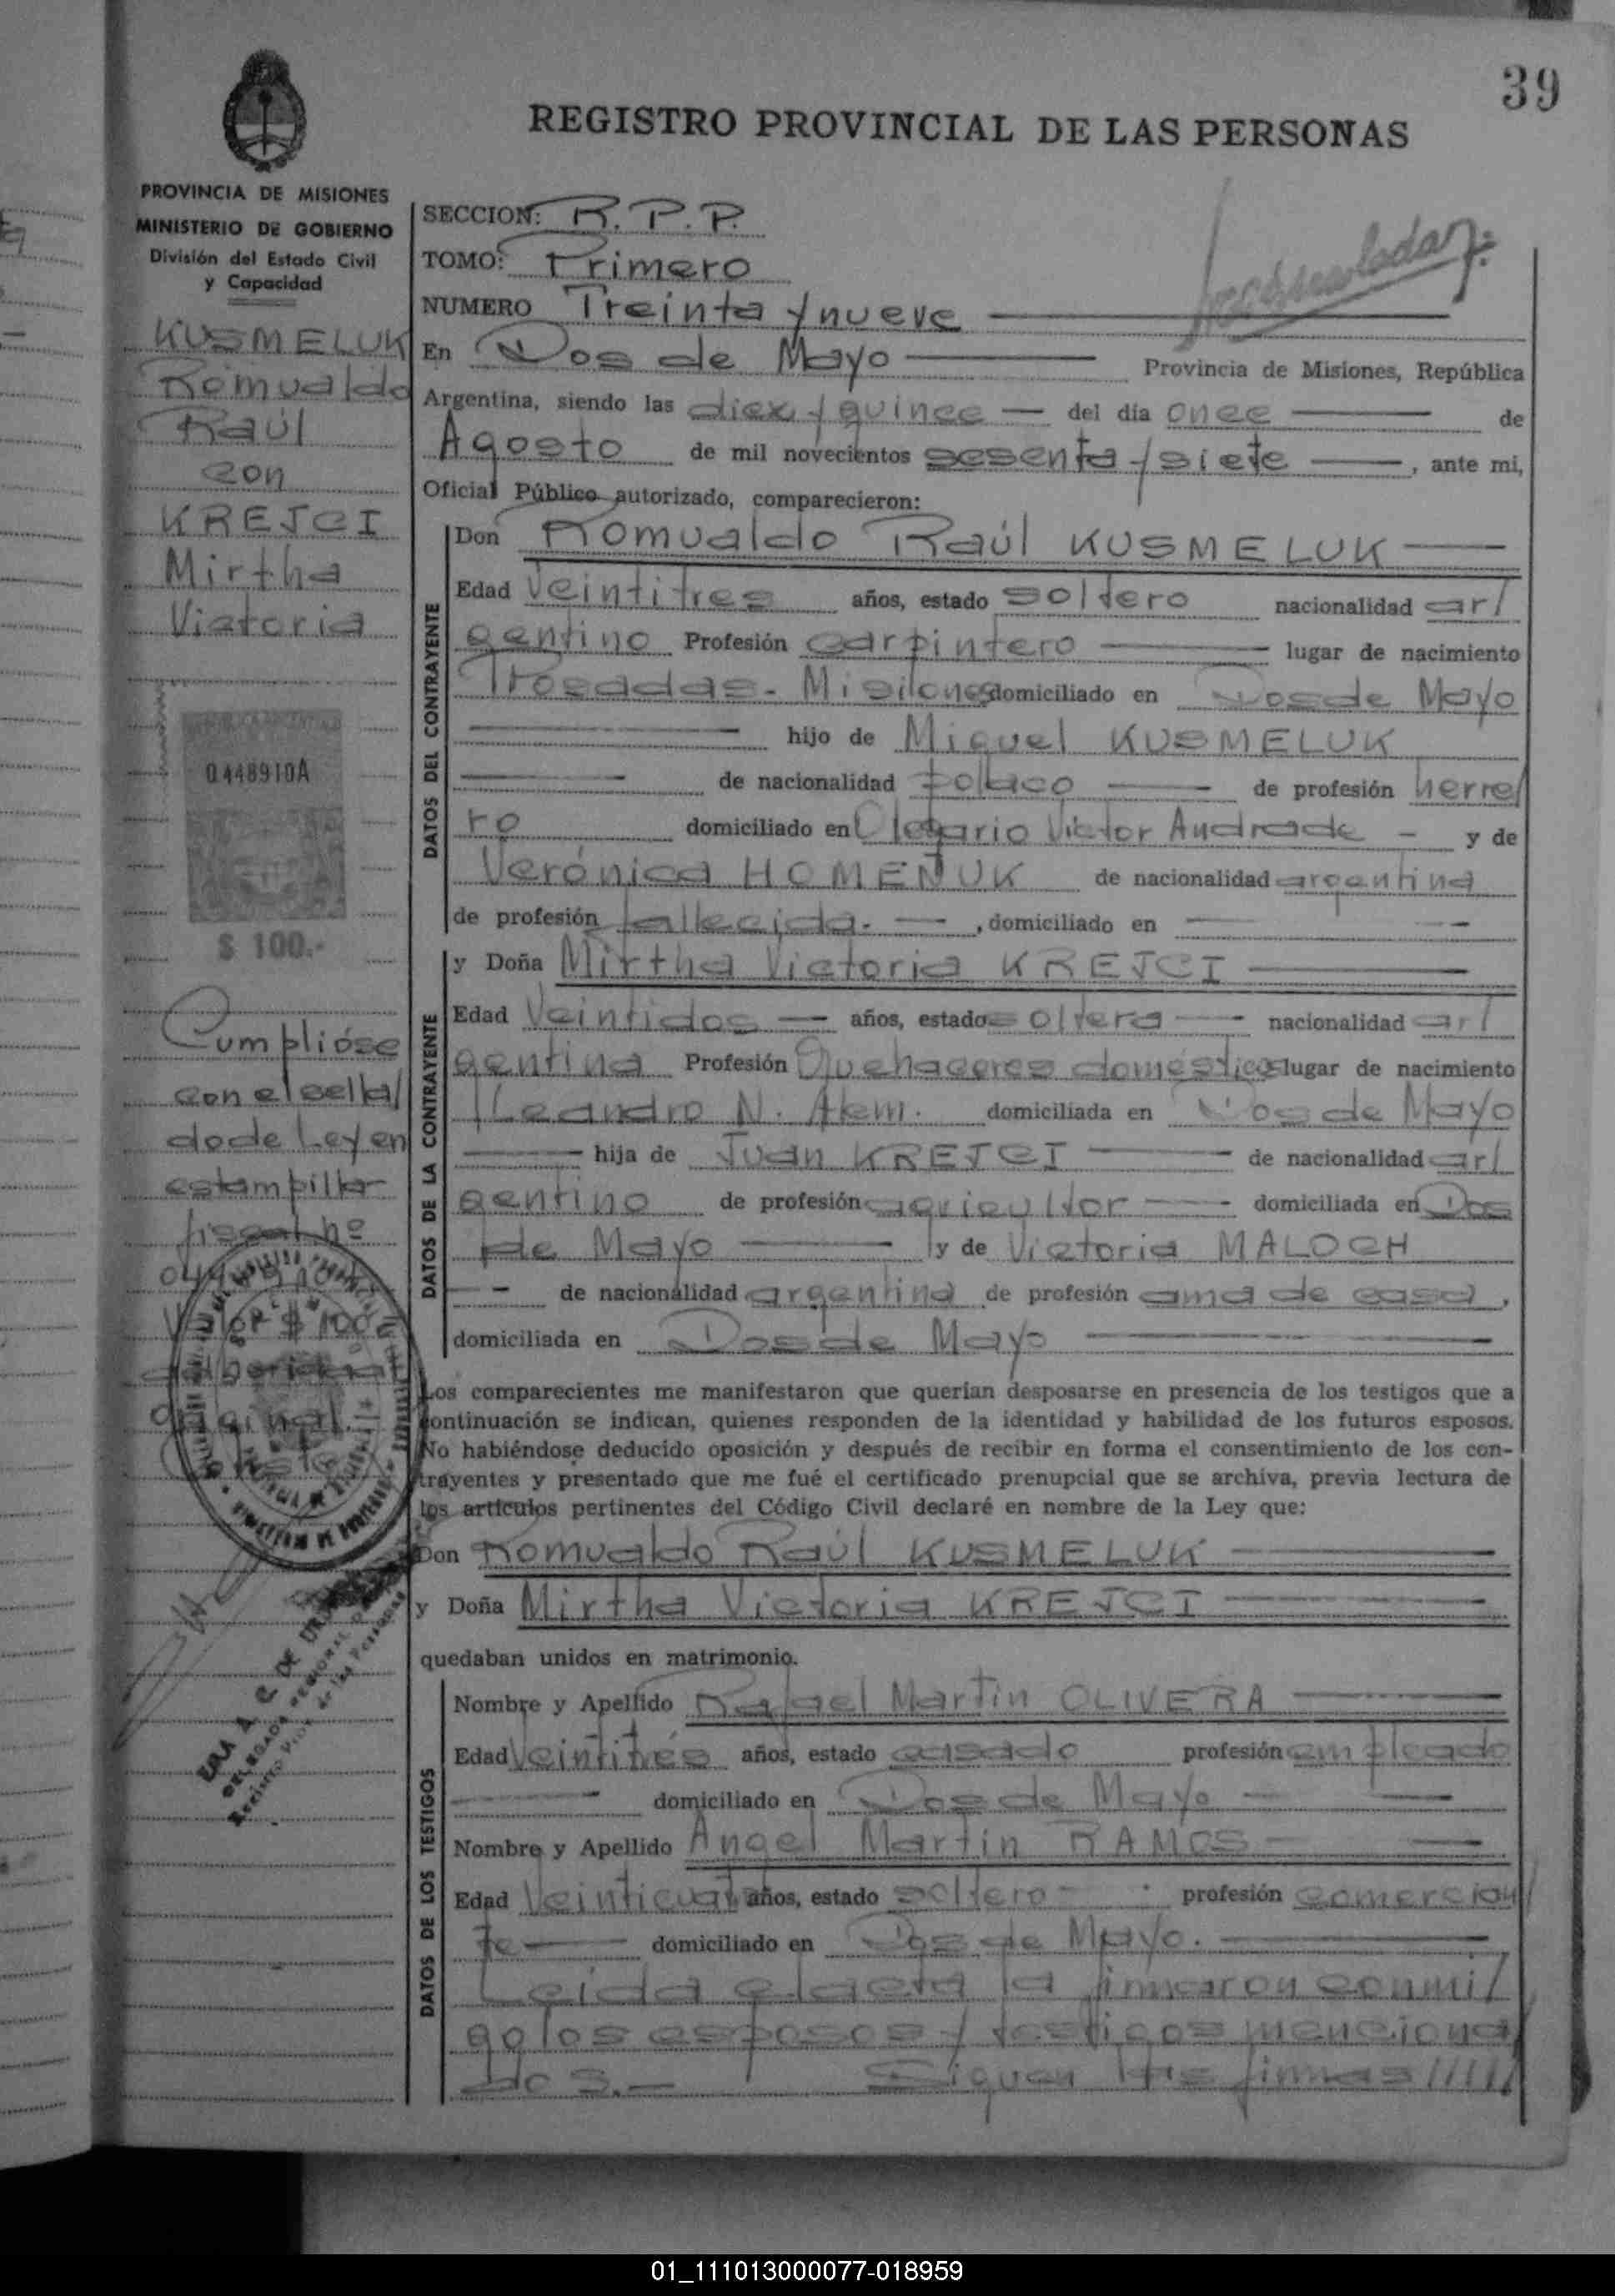 39
REGISTRO PROVINCIAL DE LAS PERSONAS
PROVINCIA DE MISIONES
MINISTERIO DE GOBIERNO
División del Estado Civil
y Capacidad
KUSMELUK
Romualdo
Raúl
con
KREJCI
Mirtha
Victoria
0448910A
$ 100.-
Cumplióse
con el sella/
do de Ley en
estampilla
fiscal nº
Valor $ 100
original.
SECCION: R.P.P.
TOMO: Primero
NUMERO Treinta y nueve
En Dos de Mayo Provincia de Misiones, República
Argentina, siendo las diez y quince del día once de
Agosto de mil novecientos sesenta y siete, ante mi,
Oficial Público autorizado, comparecieron:
DATOS DEL CONTRAYENTE
Don Romualdo Raúl KUSMELUK
Edad Veintitres años, estado soltero nacionalidad ar/
gentino Profesión carpintero lugar de nacimiento
Posadas - Misiones domiciliado en Dos de Mayo
hijo de Miguel KUSMELUK
de nacionalidad polaco de profesión herre/
ro domiciliado en Olegario Víctor Andrade - y de
Verónica HOMEÑUK de nacionalidad argentina
de profesión fallecida. - , domiciliado en
DATOS DE LA CONTRAYENTE
y Doña Mirtha Victoria KREJCI
Edad Veintidos años, estado soltera nacionalidad ar/
gentina Profesión Quehaceres domésticos lugar de nacimiento
Leandro N. Alem. domiciliada en Dos de Mayo
hija de Juan KREJCI de nacionalidad ar/
gentino de profesión agricultor domiciliada en Dos
de Mayo y de Victoria MALOCH
de nacionalidad argentina de profesión ama de casa,
domiciliada en Dos de Mayo
Los comparecientes me manifestaron que querían desposarse en presencia de los testigos que a
continuación se indican, quienes responden de la identidad y habilidad de los futuros esposos.
No habiéndose deducido oposición y después de recibir en forma el consentimiento de los con-
trayentes y presentado que me fué el certificado prenupcial que se archiva, previa lectura de
los artículos pertinentes del Código Civil declaré en nombre de la Ley que:
Don Romualdo Raúl KUSMELUK
y Doña Mirtha Victoria KREJCI
quedaban unidos en matrimonio.
DATOS DE LOS TESTIGOS
Nombre y Apellido Rafael Martin OLIVERA
Edad Veintitrés años, estado casado profesión empleado
domiciliado en Dos de Mayo
Nombre y Apellido Angel Martin RAMOS
Edad Veinticuatro años, estado soltero profesión comercian/
te domiciliado en Dos de Mayo.
Leida el acta la firmaron conmi/
go los esposos y testigos menciona/
dos.- Siguen las firmas /////
01_111013000077-018959